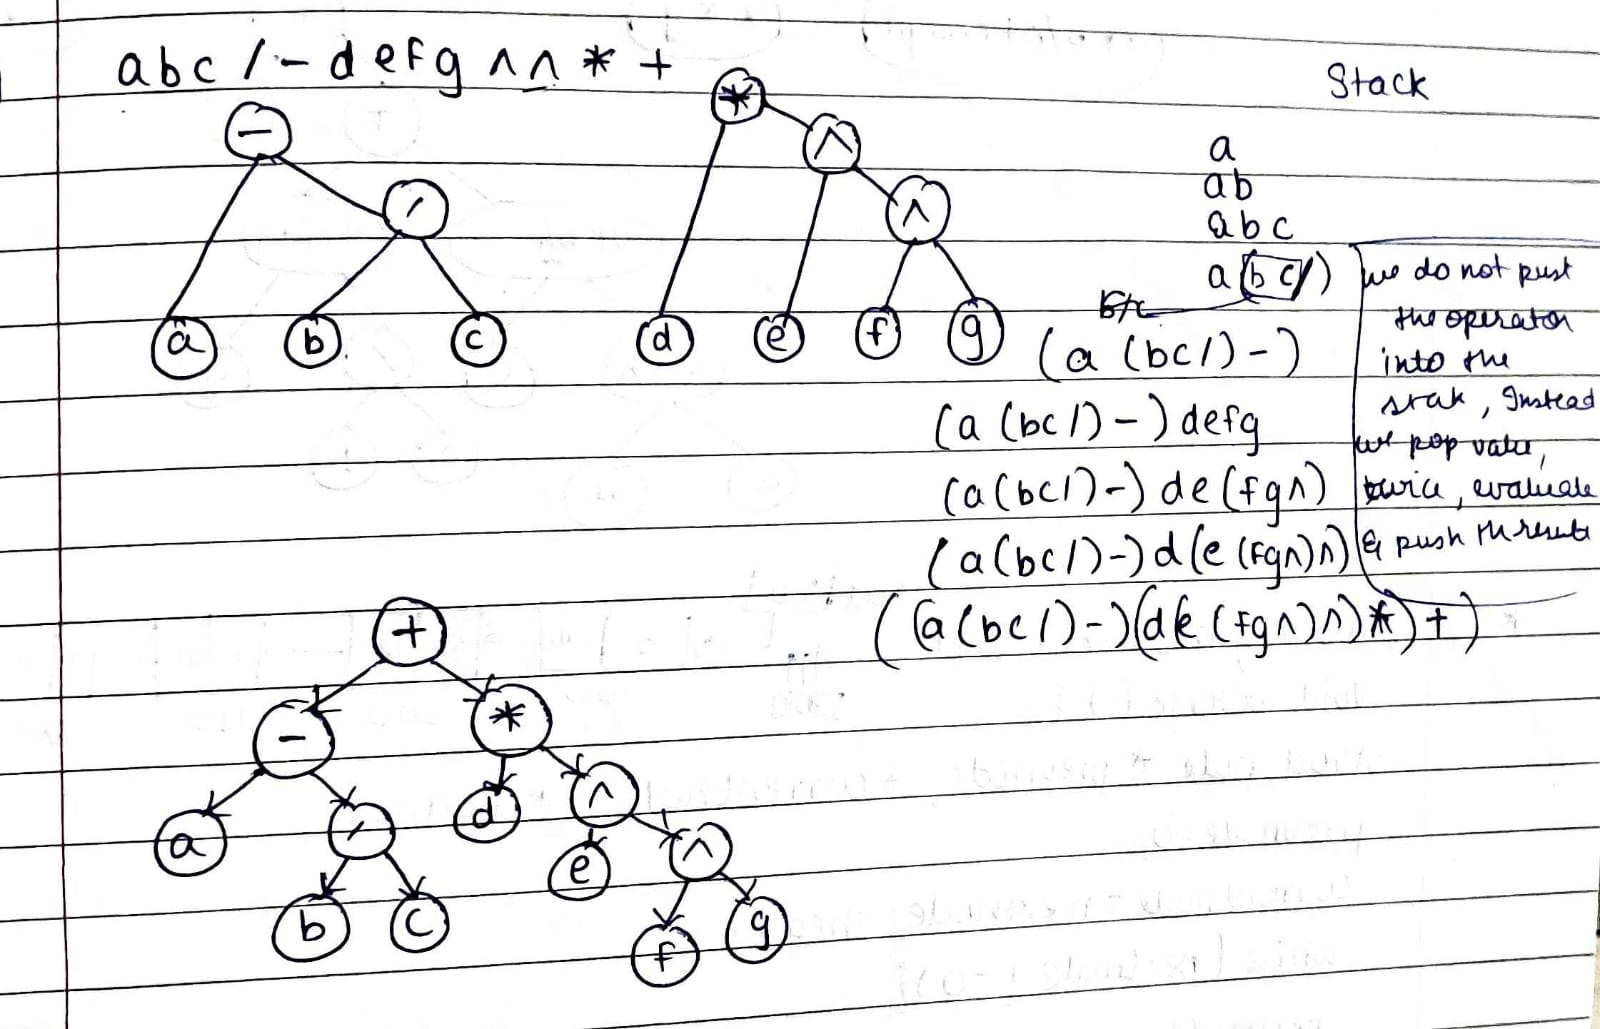 abc/-defg^^*+
Stack
-
/
a
b
c
*
^
^
d
e
f
g
a
ab
abc
a(bc/)
(a(bc/)-)
(a(bc/)-)defg
(a(bc/)-)de(fg^)
(a(bc/)-)d(e(fg^)^)
((a(bc/)-)(d(e(fg^)^)*)+)
we do not pust
the operator
into the
stak, Instead
we pop value,
twice, evaluate
& push th result
+
-
*
a
/
d
^
b
c
e
^
f
g